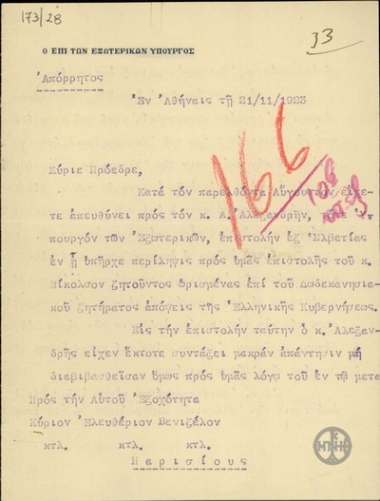 173/28
33
Ο ΕΠΙ ΤΩΝ ΕΞΩΤΕΡΙΚΩΝ ΥΠΟΥΡΓΟΣ
Ἀπόρρητος
Ἐν Ἀθήναις τῇ 21/11/1923
166
Κύριε Πρόεδρε,
Κατά τόν παρελθόντα Αὔγουστον εἴχε-
τε ἀπευθύνει πρός τόν κ. Ἀ. Ἀλεξανδρῆν,
πουργόν τῶν Ἐξωτερικῶν, ἐπιστολήν ἐξ Ἑλβετίας
ἐν ᾗ ὑπῆρχε περίληψις πρός ὑμᾶς ἐπιστολῆς τοῦ κ.
Νίκολσον ζητοῦντος ὡρισμένας ἐπί τοῦ Δωδεκανησια-
κοῦ ζητήματος ἀπόψεις τῆς Ἑλληνικῆς Κυβερνήσεως.
Εἰς τήν ἐπιστολήν ταύτην ὁ κ. Ἀλεξαν-
δρῆς εἶχεν ἔκτοτε συντάξει μακράν ἀπάντησιν μή
διαβιβασθεῖσαν ὅμως πρός ὑμᾶς λόγῳ τοῦ ἐν τῷ μετα
Πρός τήν Αὐτοῦ Ἐξοχότητα
Κύριον Ἐλευθέριον Βενιζέλον
κτλ. κτλ. κτλ.
Παρισίους